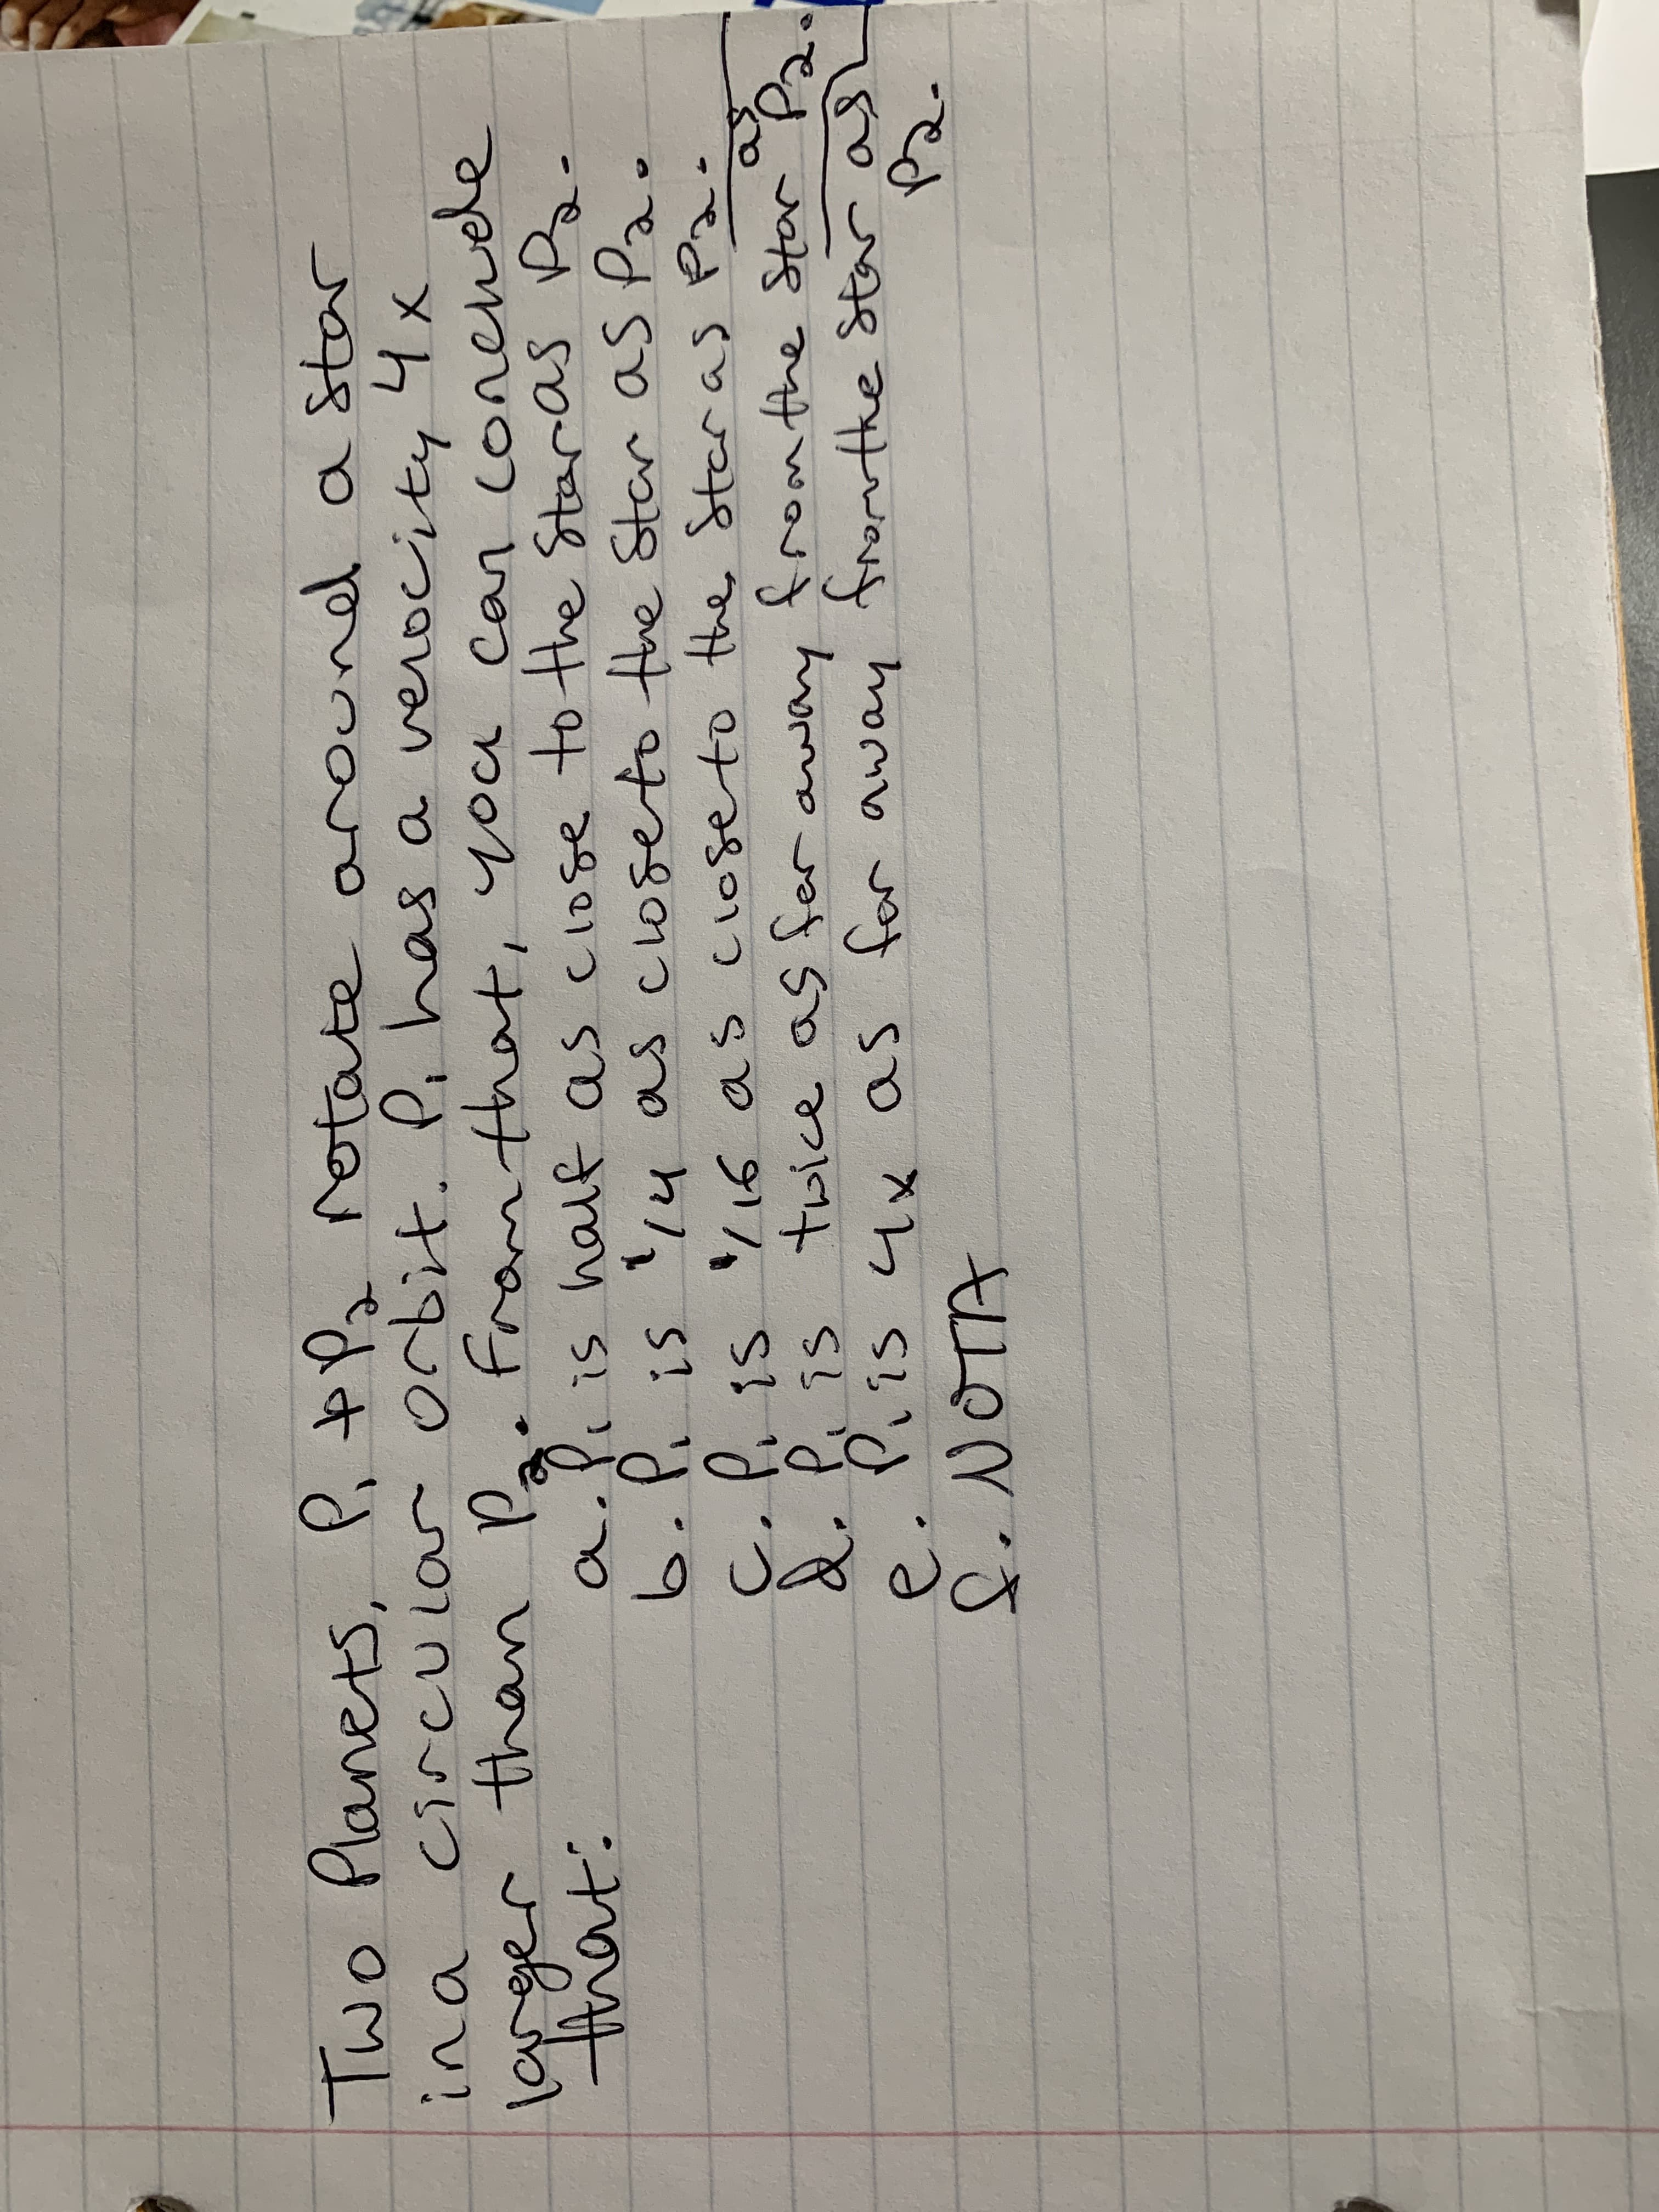 Two Planets, P₁ + P₂ rotate around a star
in a circular orbit. P₁ has a velocity 4x
larger than P₂. From that, you can conclude
that:
a. P₁ is half as close to the star as P₂.
b. P₁ is 1/4 as close to the star as P₂.
c. P₁ is 1/16 as close to the star as P₂.
d. P₁ is twice as far away from the star as P₂.
e. P₁ is 4x as far away from the star as
P₂.
f. NOTA